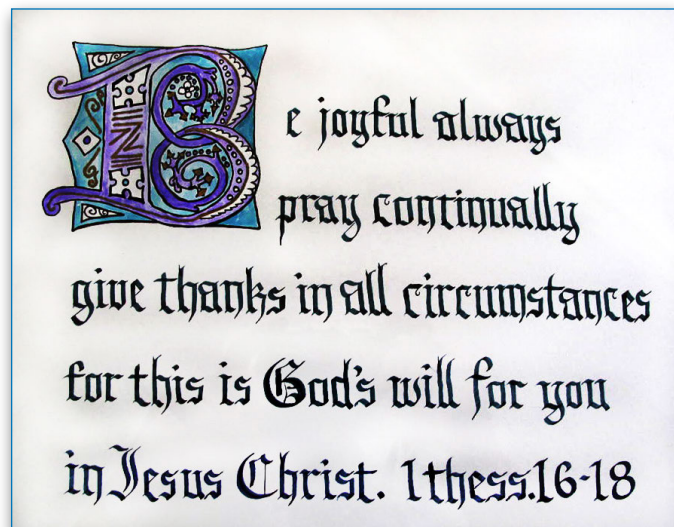 Be joyful always
pray continually
give thanks in all circumstances
for this is God's will for you
in Jesus Christ. 1thess.16-18